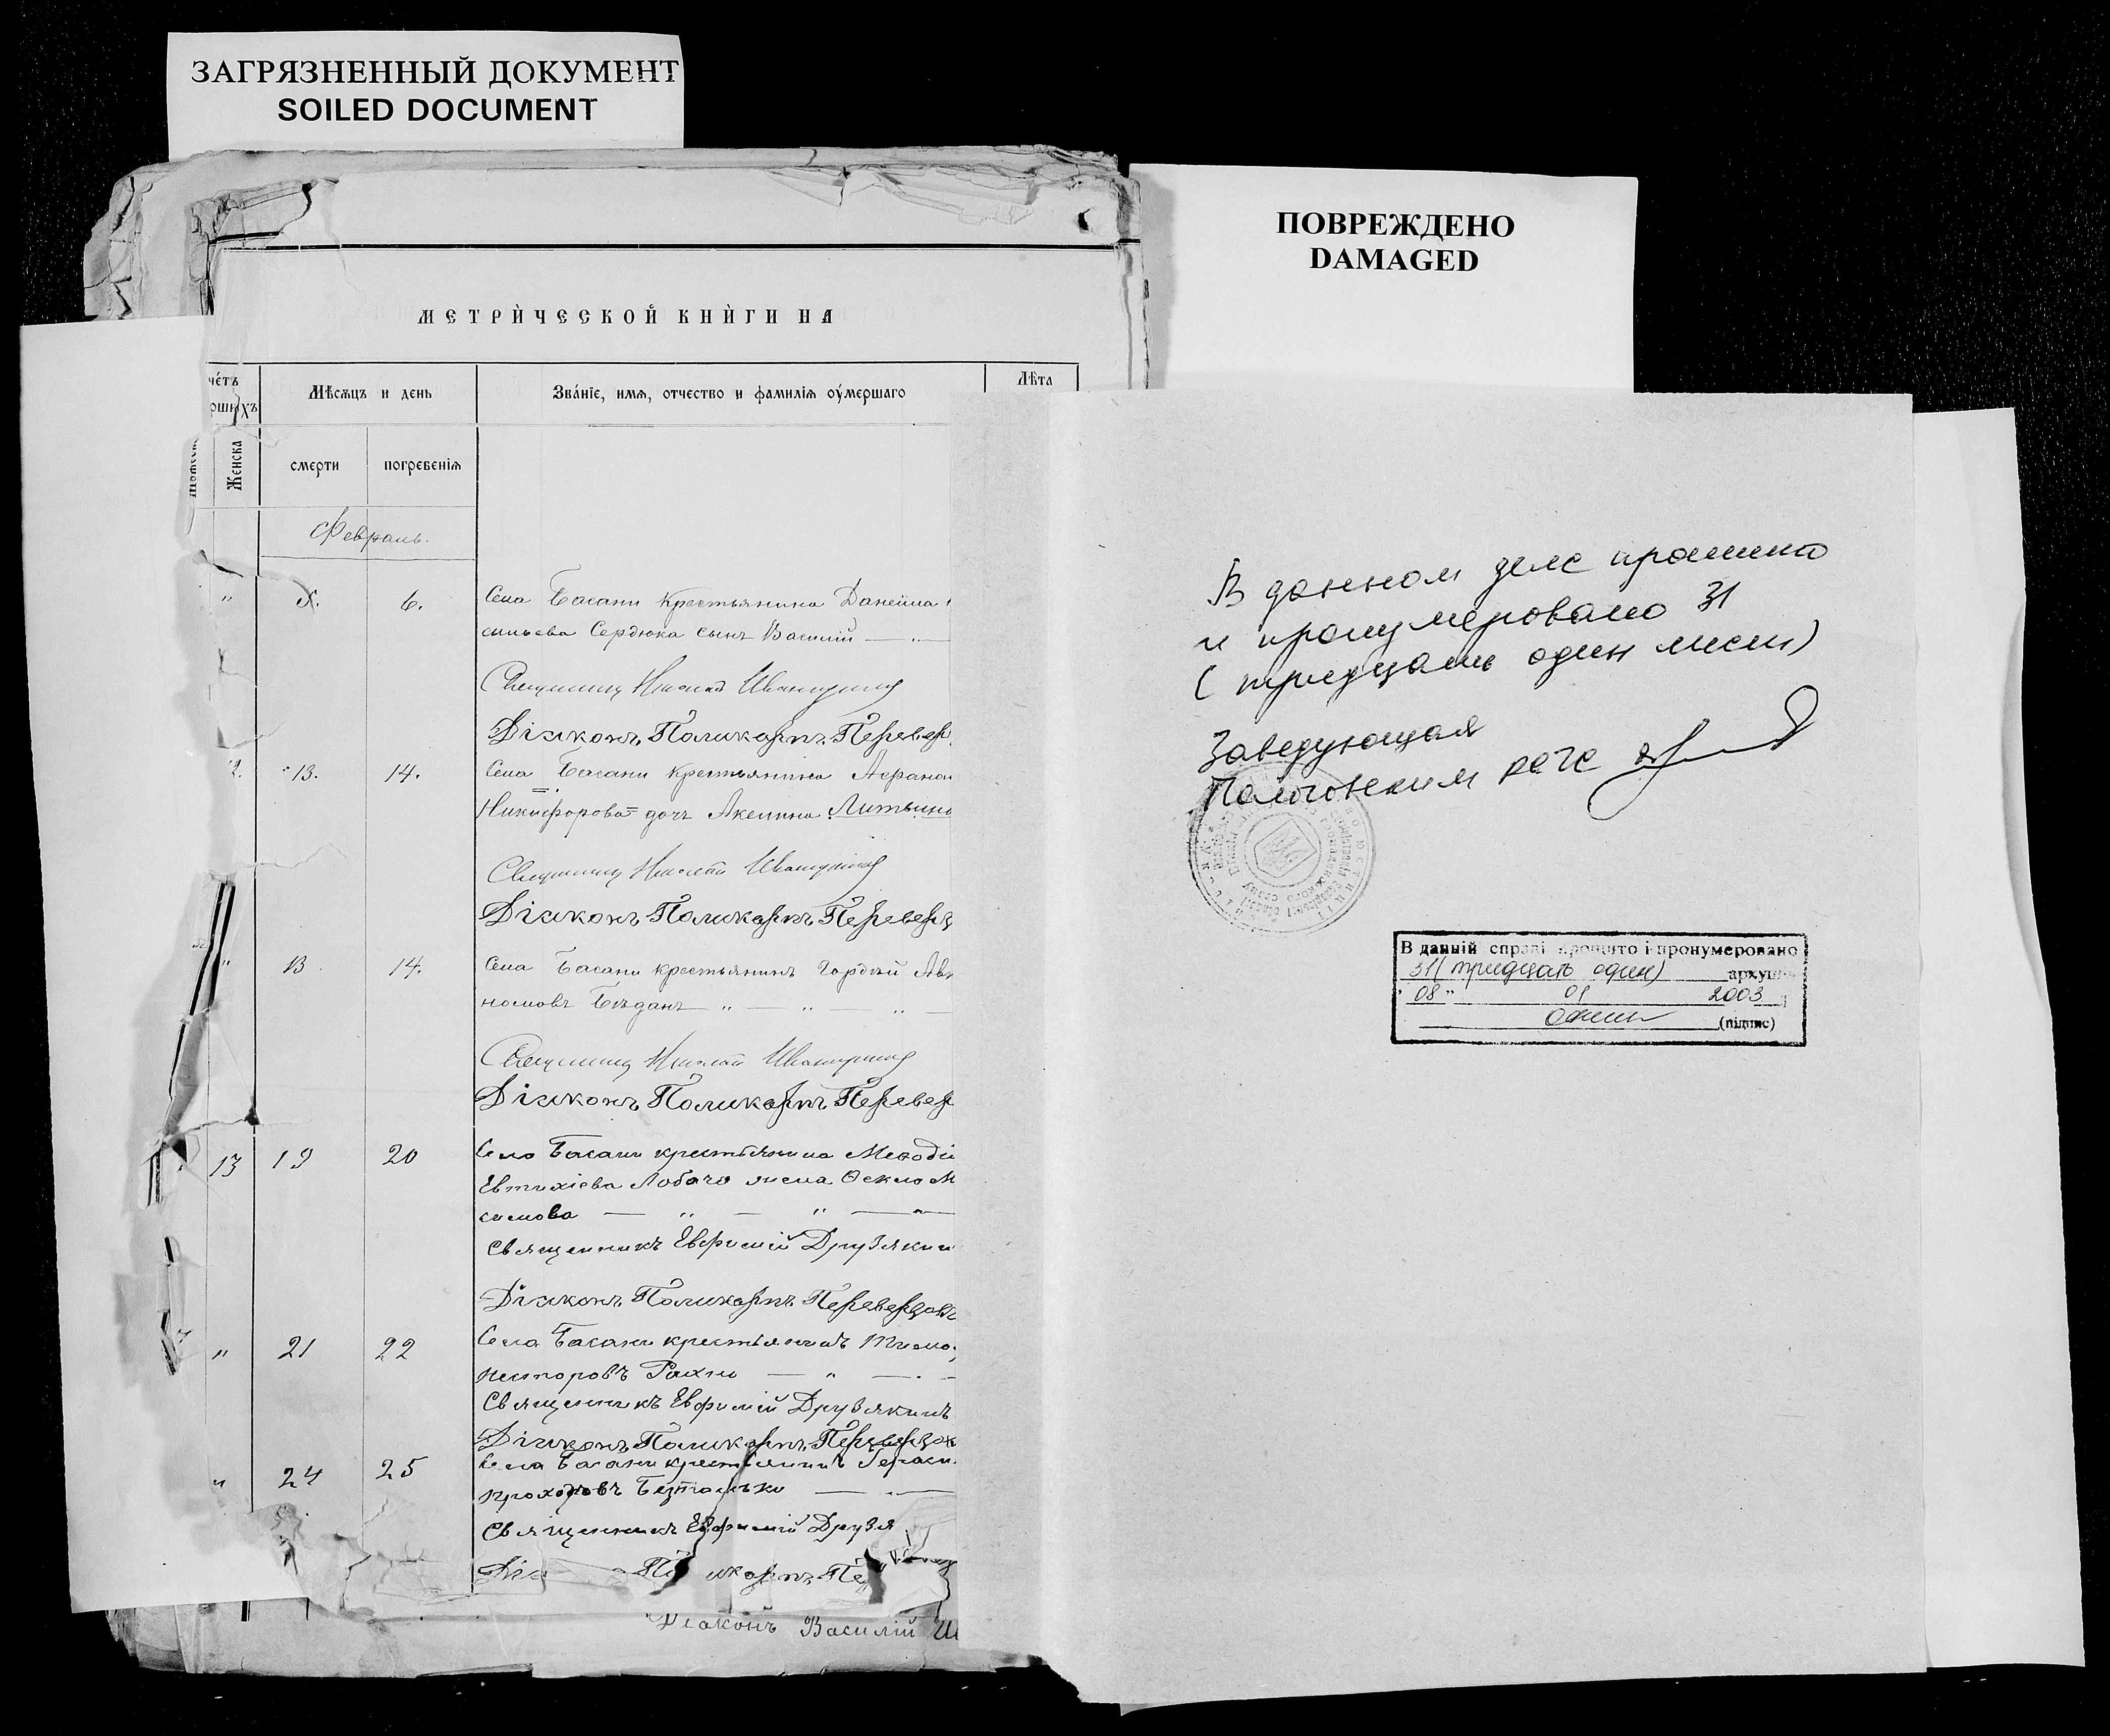 ЗАГРЯЗНЕННЫЙ ДОКУМЕНТ
SOILED DOCUMENT
ПОВРЕЖДЕНО
DAMAGED
МЕТРИ́ЧЕСКОЙ КНИ́ГИ НА
Мѣсяцъ и день
Зва́нїе, имя, отчество и фамилїя оу́мершаго
Лѣта
Женска
смерти
погребенїя
Февраль.
" 6. Села Басани крестьянина Данеила
сильева Сердюка сынъ Василій — " —
Священникъ Николай
Діаконъ Поликарпъ Перевер
13. 14. Села Басани крестьянина Афанас
Никифорова дочь Акелина Литвин
Священникъ Николай
Діаконъ Поликарпъ Переверз
" 13 14. Села Басани крестьянинъ Гордѣй Ав
номовъ — " — " — " —
Священникъ Николай
Діаконъ Поликарпъ Перевер
13 19 20 Село Басани крестьянина Меѳоді
Евтихіева Лобача жена Ѳекла М
симова — " — " —
Священникъ Евфимій Друзякин
Діаконъ Поликарпъ Переверзовъ
" 21 22 Села Басани крестьянинъ Тимо
Несторовъ Рахно — " —
Священникъ Евфимій Друзякинъ
Діаконъ Поликарпъ Переверзов
" 24 25 Села Басани крестьянинъ Гераси
Прохоровъ —
Священникъ Евфимій Друзя
Поликарпъ Пе
Діаконъ Василій
В данном деле прошито
и пронумеровано 31
(тридцать один лист)
Заведующая
Пологовским рагс
В данній справі прошито і пронумеровано
31 (тридцать один) аркуш
" 08 " 01 2003
(підпис)